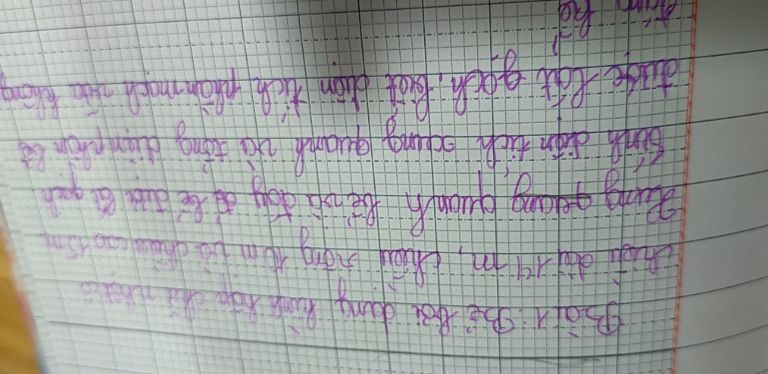 Bài 1: Bể bơi dạng hình hộp chữ nhật có
chiều dài 14 m, chiều rộng m và chiều cao 1,5m
Xung quang quanh bể và đáy bể được lát gạch
tính diện tích xung quanh và tổng diện phần bể
được lát gạch, biết diện tích phần mạch vữa không
đáng kể